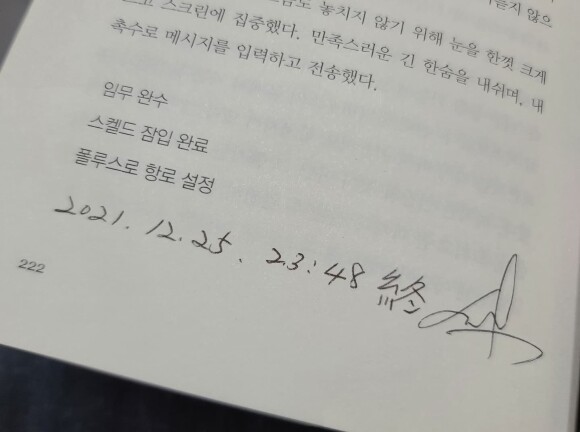 놓치지 않기 위해 눈을 한껏 크게
스크린에 집중했다. 만족스러운 긴 한숨을 내쉬며, 내
촉수로 메시지를 입력하고 전송했다.
임무 완수
스켈드 잠입 완료
폴루스로 항로 설정
2021. 12. 25. 23:48 終
222